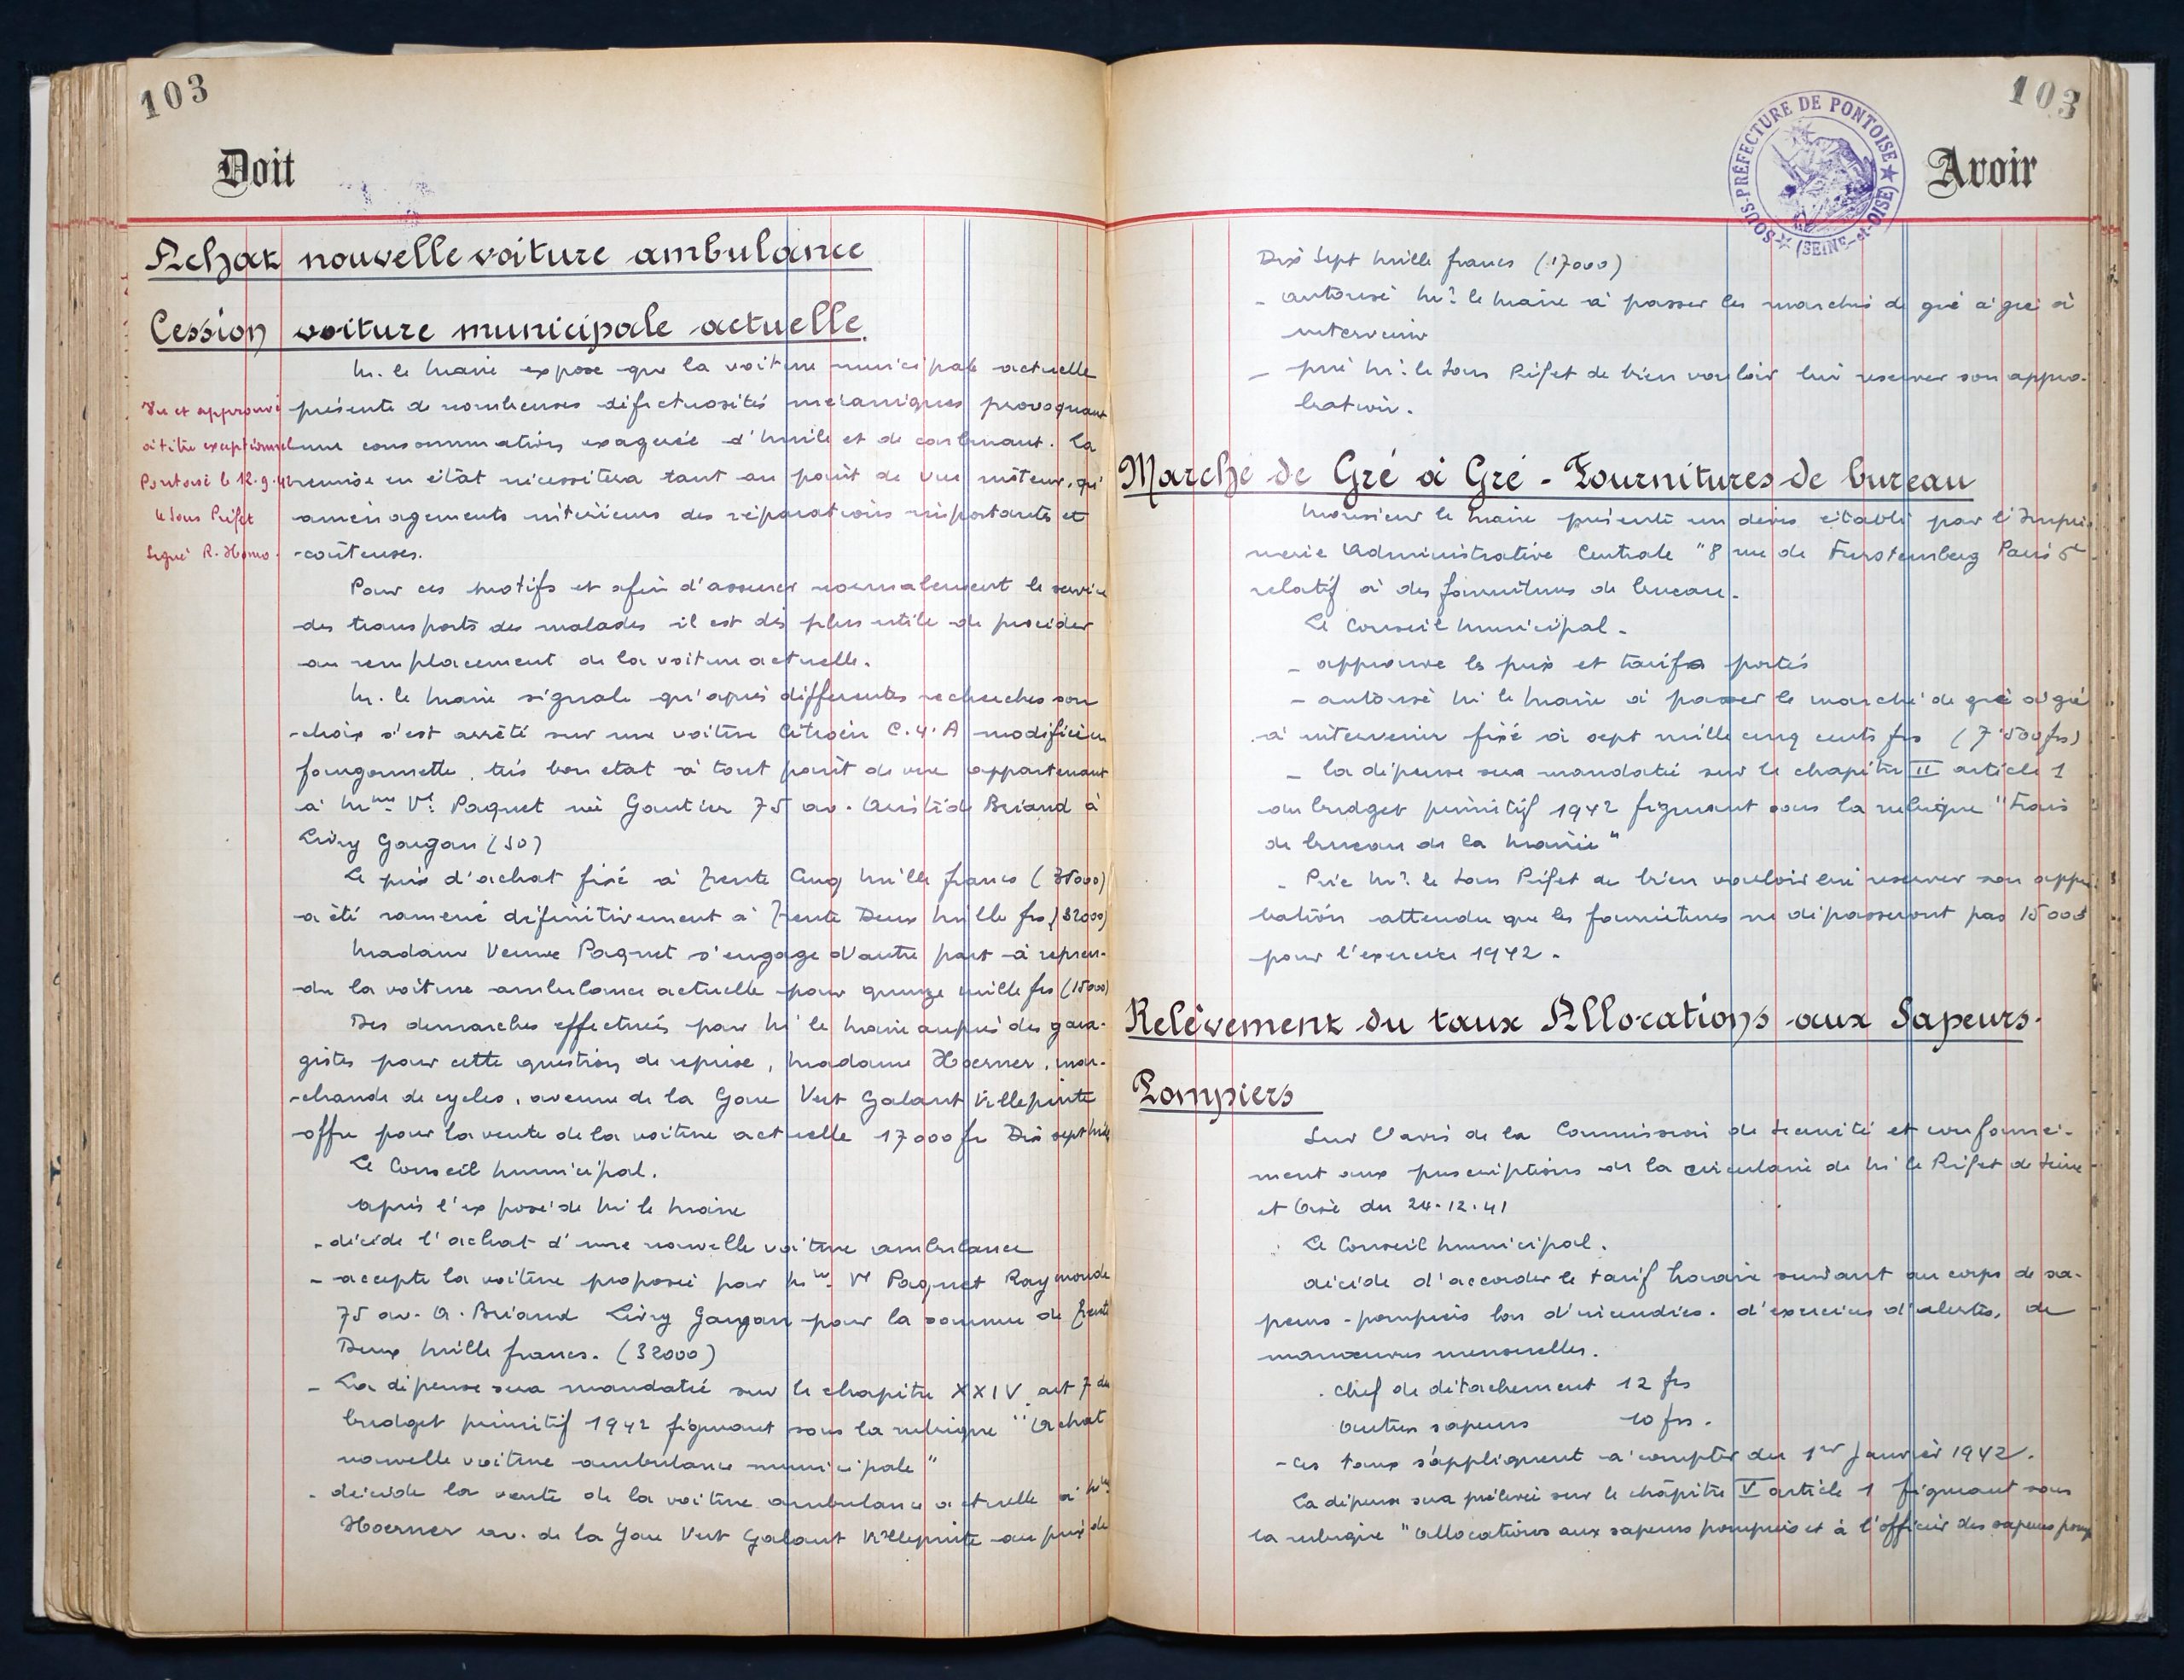 103
Doit
Achat nouvelle voiture ambulance
Cession voiture municipale actuelle.
M. le Maire expose que la voiture municipale actuelle
présente de nombreuses défectuosités mécaniques provoquant
une consommation exagérée d'huile et de carburant. La
remise en état nécessitera tant au point de vue moteur, qu'
aménagements intérieurs des réparations importants et
coûteuses.
Vu et approuvé
à titre exceptionnel
Pontoise le 12.9.42
le Sous Préfet
Signé R. Homo.
Pour ces motifs et afin d'assurer normalement le service
des transports des malades il est des plus utile de procéder
au remplacement de la voiture actuelle.
M. le Maire signale qu'après différentes recherches son
choix s'est arrêté sur une voiture Citroën C.4.A modifiée en
fourgonnette, très bon etat à tout point de vue appartenant
à Mme Ve Paquet né Gautier 75 av. Aristide Briand à
Livry Gargan (SO)
Le prix d'achat fixé à Trente Cinq Mille francs (35000)
a été ramené définitivement à Trente Deux Mille frs (32000)
Madame Veuve Paquet s'engage d'autre part à repren-
dre la voiture ambulance actuelle pour quinze mille frs (15000)
Des demarches effectuées par M. le Maire auprès des gara-
gistes pour cette question de reprise, Madame Hoerner, mar-
chande de cycles, avenue de la Gare Vert Galant Villepinte
offre pour la vente de la voiture actuelle 17000 fr Dix sept Mille
Le Conseil Municipal.
après l'exposé de M. le Maire
- décide l'achat d'une nouvelle voiture ambulance
- accepte la voiture proposée par Mme Ve Paquet Raymonde
75 av. A. Briand Livry Gargan pour la somme de Trente
Deux Mille francs. (32000)
- La dépense sera mandatée sur le chapitre XXIV art 7 du
budget primitif 1942 figurant sous la rubrique "Achat
nouvelle voiture ambulance municipale"
- décide la vente de la voiture ambulance actuelle à Mme
Hoerner av. de la Gare Vert Galant Villepinte au prix de
103
SOUS-PRÉFECTURE DE PONTOISE
(SEINE-et-OISE)
Avoir
Dix Sept Mille francs (17000)
- autorise Mr le Maire à passer les marchés de gré à gré à
intervenir
- prie Mr le Sous Préfet de bien vouloir lui reserver son appro-
bation.
Marché de Gré à Gré - Fournitures de bureau
Monsieur le Maire présente un devis établi par l'Impri-
merie Administrative Centrale "8 rue de Furstemberg Paris 6e
relatif à des fournitures de bureau.
Le Conseil Municipal.
- approuve les prix et tarifs portés
- autorise M. le Maire à passer le marché de gré à gré
à intervenir fixé à sept mille cinq cents frs (7.500 frs)
- la dépense sera mandatée sur le chapitre II article 1
du budget primitif 1942 figurant sous la rubrique "Frais
de bureau de la Mairie"
- Prie Mr. le Sous Préfet de bien vouloir lui reserver son appro-
bation attendu que les fournitures ne dépasseront pas 15000
pour l'exercice 1942.
Relèvement du taux Allocations aux Sapeurs-
Pompiers
Sur l'avis de la Commission de Sécurité et conformé-
ment aux prescriptions de la circulaire de M. le Préfet de Seine
et Oise du 24.12.41
Le Conseil Municipal.
décide d'accorder le tarif horaire suivant au corps de sa-
peurs-pompiers lors d'incendies. d'exercices d'alertes, de
manœuvres mensuelles.
. chef de détachement 12 frs
autres sapeurs 10 frs.
- ces taux s'appliquent à compter du 1er Janvier 1942.
La dépense sera prélevée sur le chapitre V article 1 figurant sous
la rubrique "Allocations aux sapeurs pompiers et à l'officier des sapeurs pomp